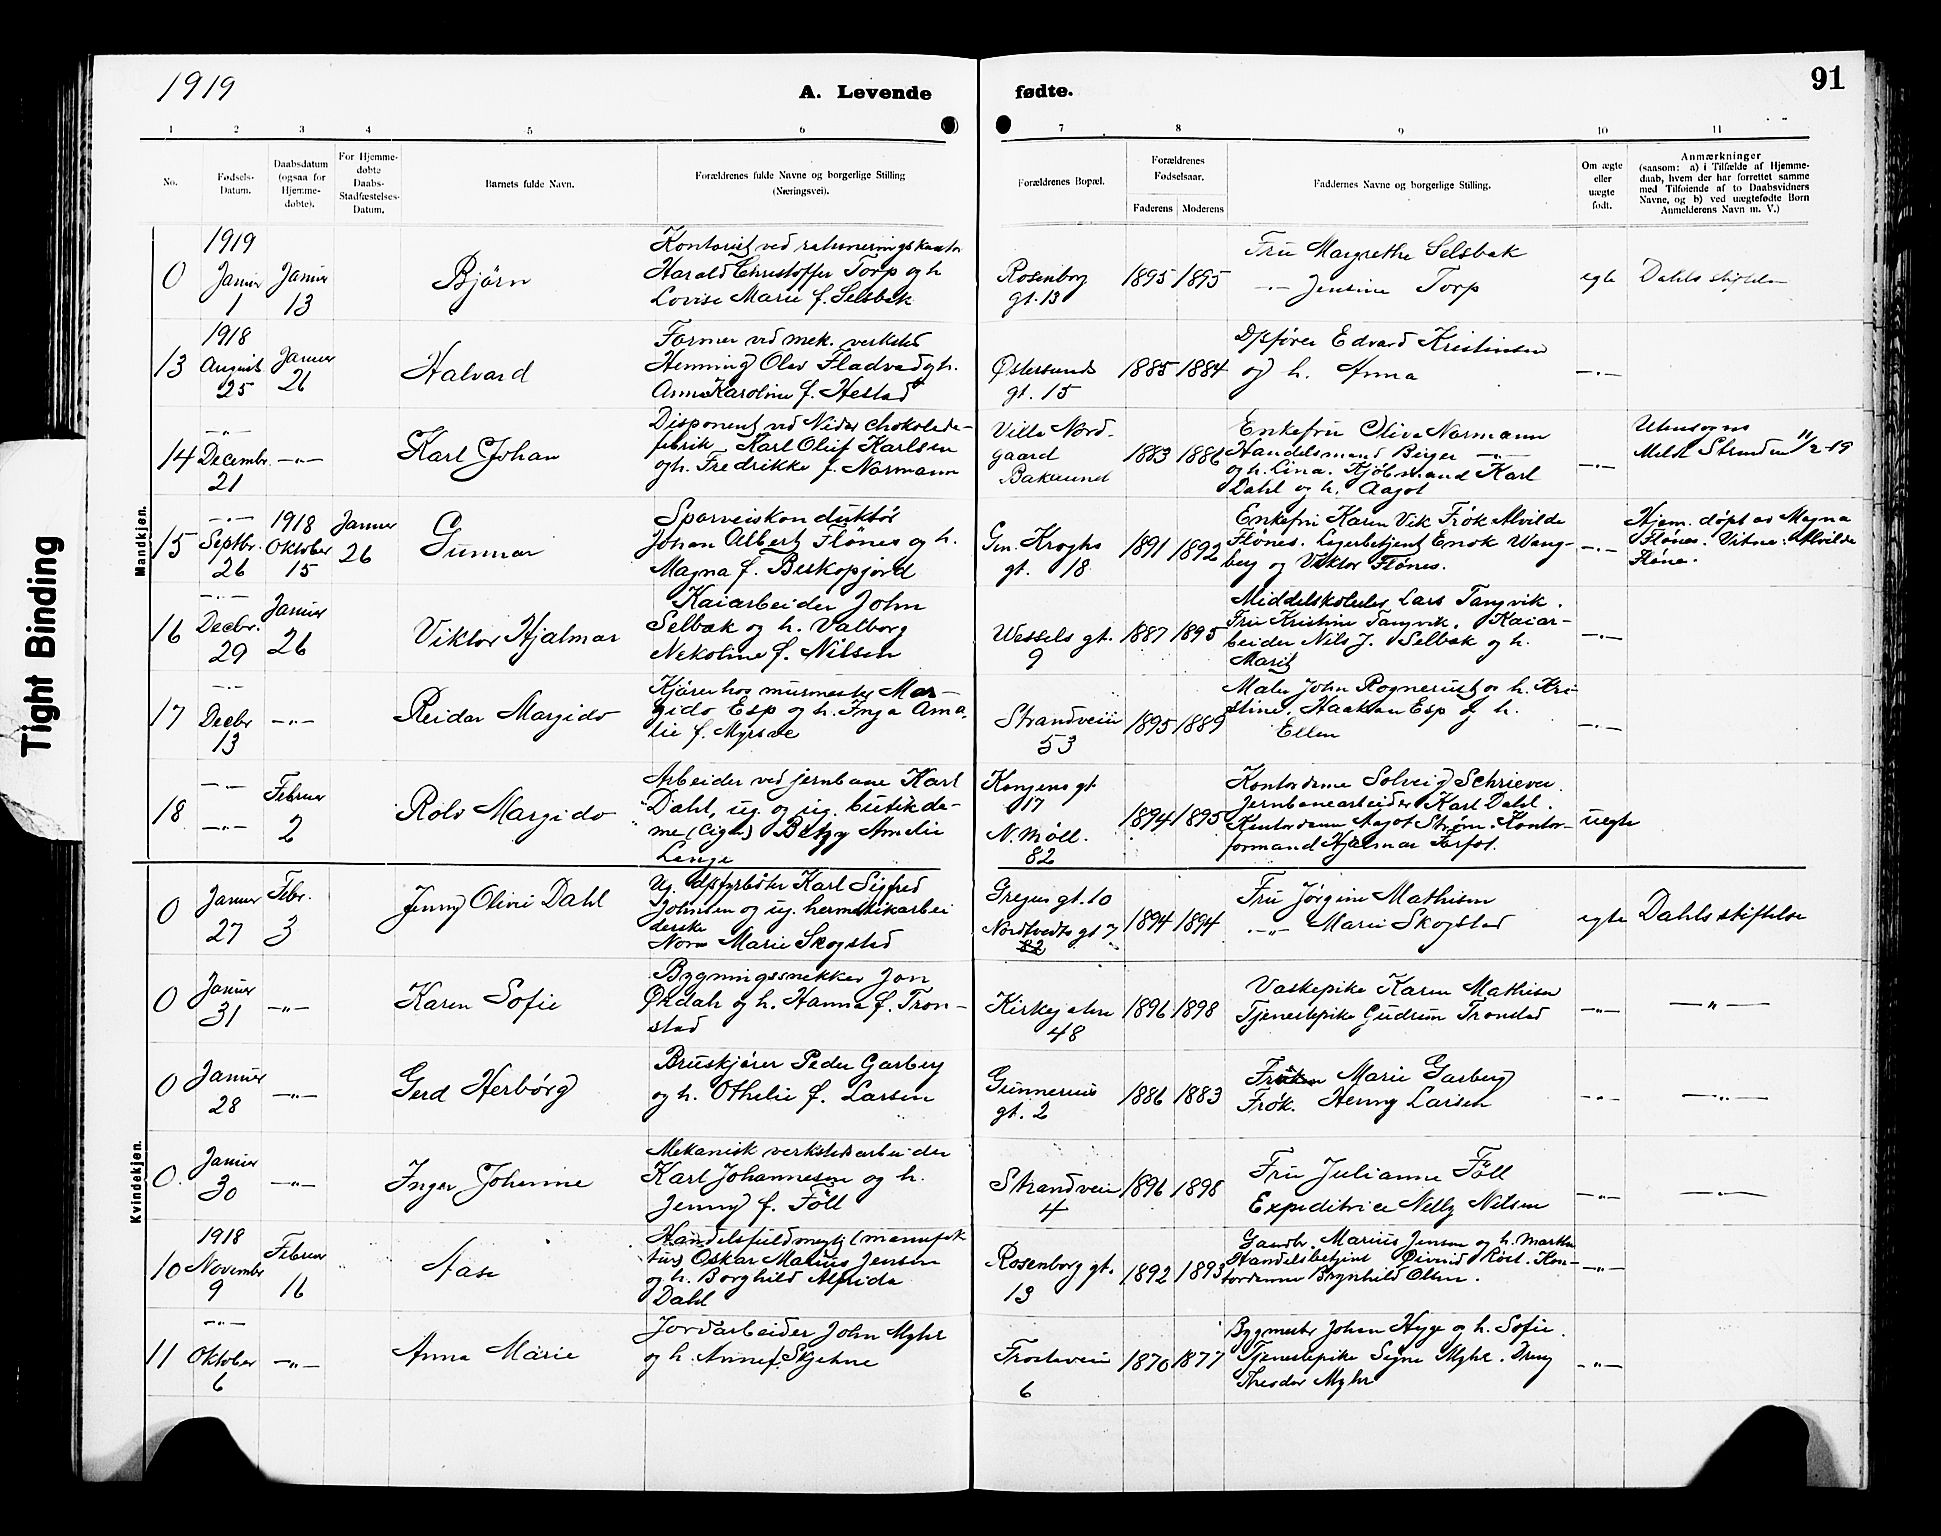 1919
A. Levende fødte.
91
1 2 3 4 5 6 7 8 9 10 11
No.
Fødsels-
Datum.
Daabsdatum
(ogsaa for
Hjemme-
døbte).
For Hjemme-
døbte
Daabs-
Stadfæstelses-
Datum.
Barnets fulde Navn.
Forældrenes fulde Navne og borgerlige Stilling
(Næringsvei).
Forældrenes Bopæl.
Forældrenes
Fødselsaar.
Faderens Moderens
Faddernes Navne og borgerlige Stilling.
Om ægte
eller
uægte
født.
Anmærkninger
(saasom: a) i Tilfælde af Hjemme-
daab, hvem der har forrettet samme
med Tilføiende af to Daabsvidners
Navne, og b) ved uægtefødte Børn
Anmelderens Navn m. V.)
Mandkjøn.
1919
0
Januar
1
Januar
13
Bjørn
Kontorist ved rationeringskontor
Harald Christoffer Torp og h.
Lovise Marie f. Selsbak
Rosenborg
gt. 13
1895 1895
Fru Margrethe Selsbak
-"- Jensine Torp
egte
Dahls stiftelse
1918
13
August
25
Januar
26
Halvard
Former ved mek. verksted
Henning Olav Fladvad og h.
Anna Karoline f. Hestad
Østersunds
gt. 15
1885 1884
Dpfører Edvard Kristinsen
og h. Anna
-"-
-"-
14
Decembr.
21
-"-
Karl Johan
Disponent ved Nidar chokolade-
fabrik, Karl Oluf Karlsen
og h. Fredrikke f. Normann
Villa Nord-
gaard
Baklund
1883 1886
Enkefru Oliva Normann
Handelsmand Birger -"-
og h. Lina. Kjøbmand Karl
Dahl og h. Aagot
-"-
Utensogns
Meldt Stranden 11/2-19
-"-
15
Septbr.
26
1918
Oktober
15
Januar
26
Gunnar
Sporveiskonduktør
Johan Albert Flønes og h.
Magna f. Beskopjord
Gen. Kroghs
gt. 18
1891 1892
Enkefru Karen Vik Frøk Alvilde
Flønes. Lagerbetjent Enok Wang-
berg og Viktor Flønes.
-"-
Hjem. døpt av Magna
Flønes. Vitne: Alvilde
Fløne.
-"-
16
Decbr.
29
Januar
26
Viktor Hjalmar
Kaiarbeider John
Selbæk og h. Valborg
Nekoline f. Nilsen
Wessels gt.
9
1887 1895
Middelskolelev Lars Tangvik.
Fru Kristine Tangvik. Kaiar-
beider Nils J. Selbæk og h.
Marit
-"-
-"-
17
Decbr
13
-"-
Reidar Margido
Kjører hos murmester Mar-
gido Esp og h. Inga Ama-
lie f. Myrsæe
Strandveien
53
1895 1889
Maler John Rognerust og h. Kri-
stine. Haakon Esp og h.
Ellen
-"-
-"-
18
-"-
Februar
2
Rolv Margido
Arbeider ved jernbane Karl
Dahl, ug. og ug. butikda-
me (Cigar) Betzy Amelie
Lenge
Kongens gt
17
N. Møll.
82
1894 1895
Kontordame Solveig Schriever.
Jernbanearbeider Karl Dahl.
Kontordame Aagot Strøm. Kontor-
formand Hjalmar Farfot.
uegte
Kvindekjøn.
0
Januar
27
Febr.
3
Jenny Olivie Dahl
Ug. dpfyrbøter Karl Sigfred
Johnsen og ug. hermetikarbei
derske
Nora Marie Skogstad
Grejus gt. 10
Nordtvedts gt 7
82
1894 1894
Fru Jørgine Mathisen
-"- Marie Skogstad
egte
Dahls stiftelse
0
Januar
31
-"-
Karen Sofie
Bygningssnekker Jon
Ørdahl og h. Hanna f. Tron-
stad
Kirkegaten
48
1896 1898
Vaskepike Karen Mathisen
Tjenestepike Gudrun Tronstad
-"-
-"-
0
Januar
28
-"-
Gerd Herbórg
Bruskjører Peder Garberg
og h. Othelie f. Larsen
Gunnerius
gt. 2
1886 1883
Marie Garberg
Frøk. Henny Larsen
-"-
-"-
0.
Januar
30
-"-
Inger Johanne
Mekanisk verkstedsarbeider
Karl Johannesen og h.
Jenny f. Föll
Strandveien
4
1896 1898
Fru Julianne Föll
Expeditrice Nelly Nilsen
-"-
-"-
1918
10
Novembr
9
Februar
16
Aase
Handelsfuldmegtig (manufak
tur) Oskar Marius Jensen
og h. Borghild Alfrida
Dahl
Rosenborg gt.
13
1892 1893
Gaardbr. Marius Jensen og h. Martha
Handelsbetjent Øivind Røst. Kon-
tordamme Brynhild Olsen.
-"-
-"-
11
Oktober
6
-"-
Anna Marie
Jordarbeider John Myhr
og h. Anne f. Skjetne
Frostaveien
6
1870 1877
Bygmester Johan Hyge og h. Sofie.
Tjenestepike Signe Myhr. Dreng
Theodor Myhr
-"-
Tight Binding